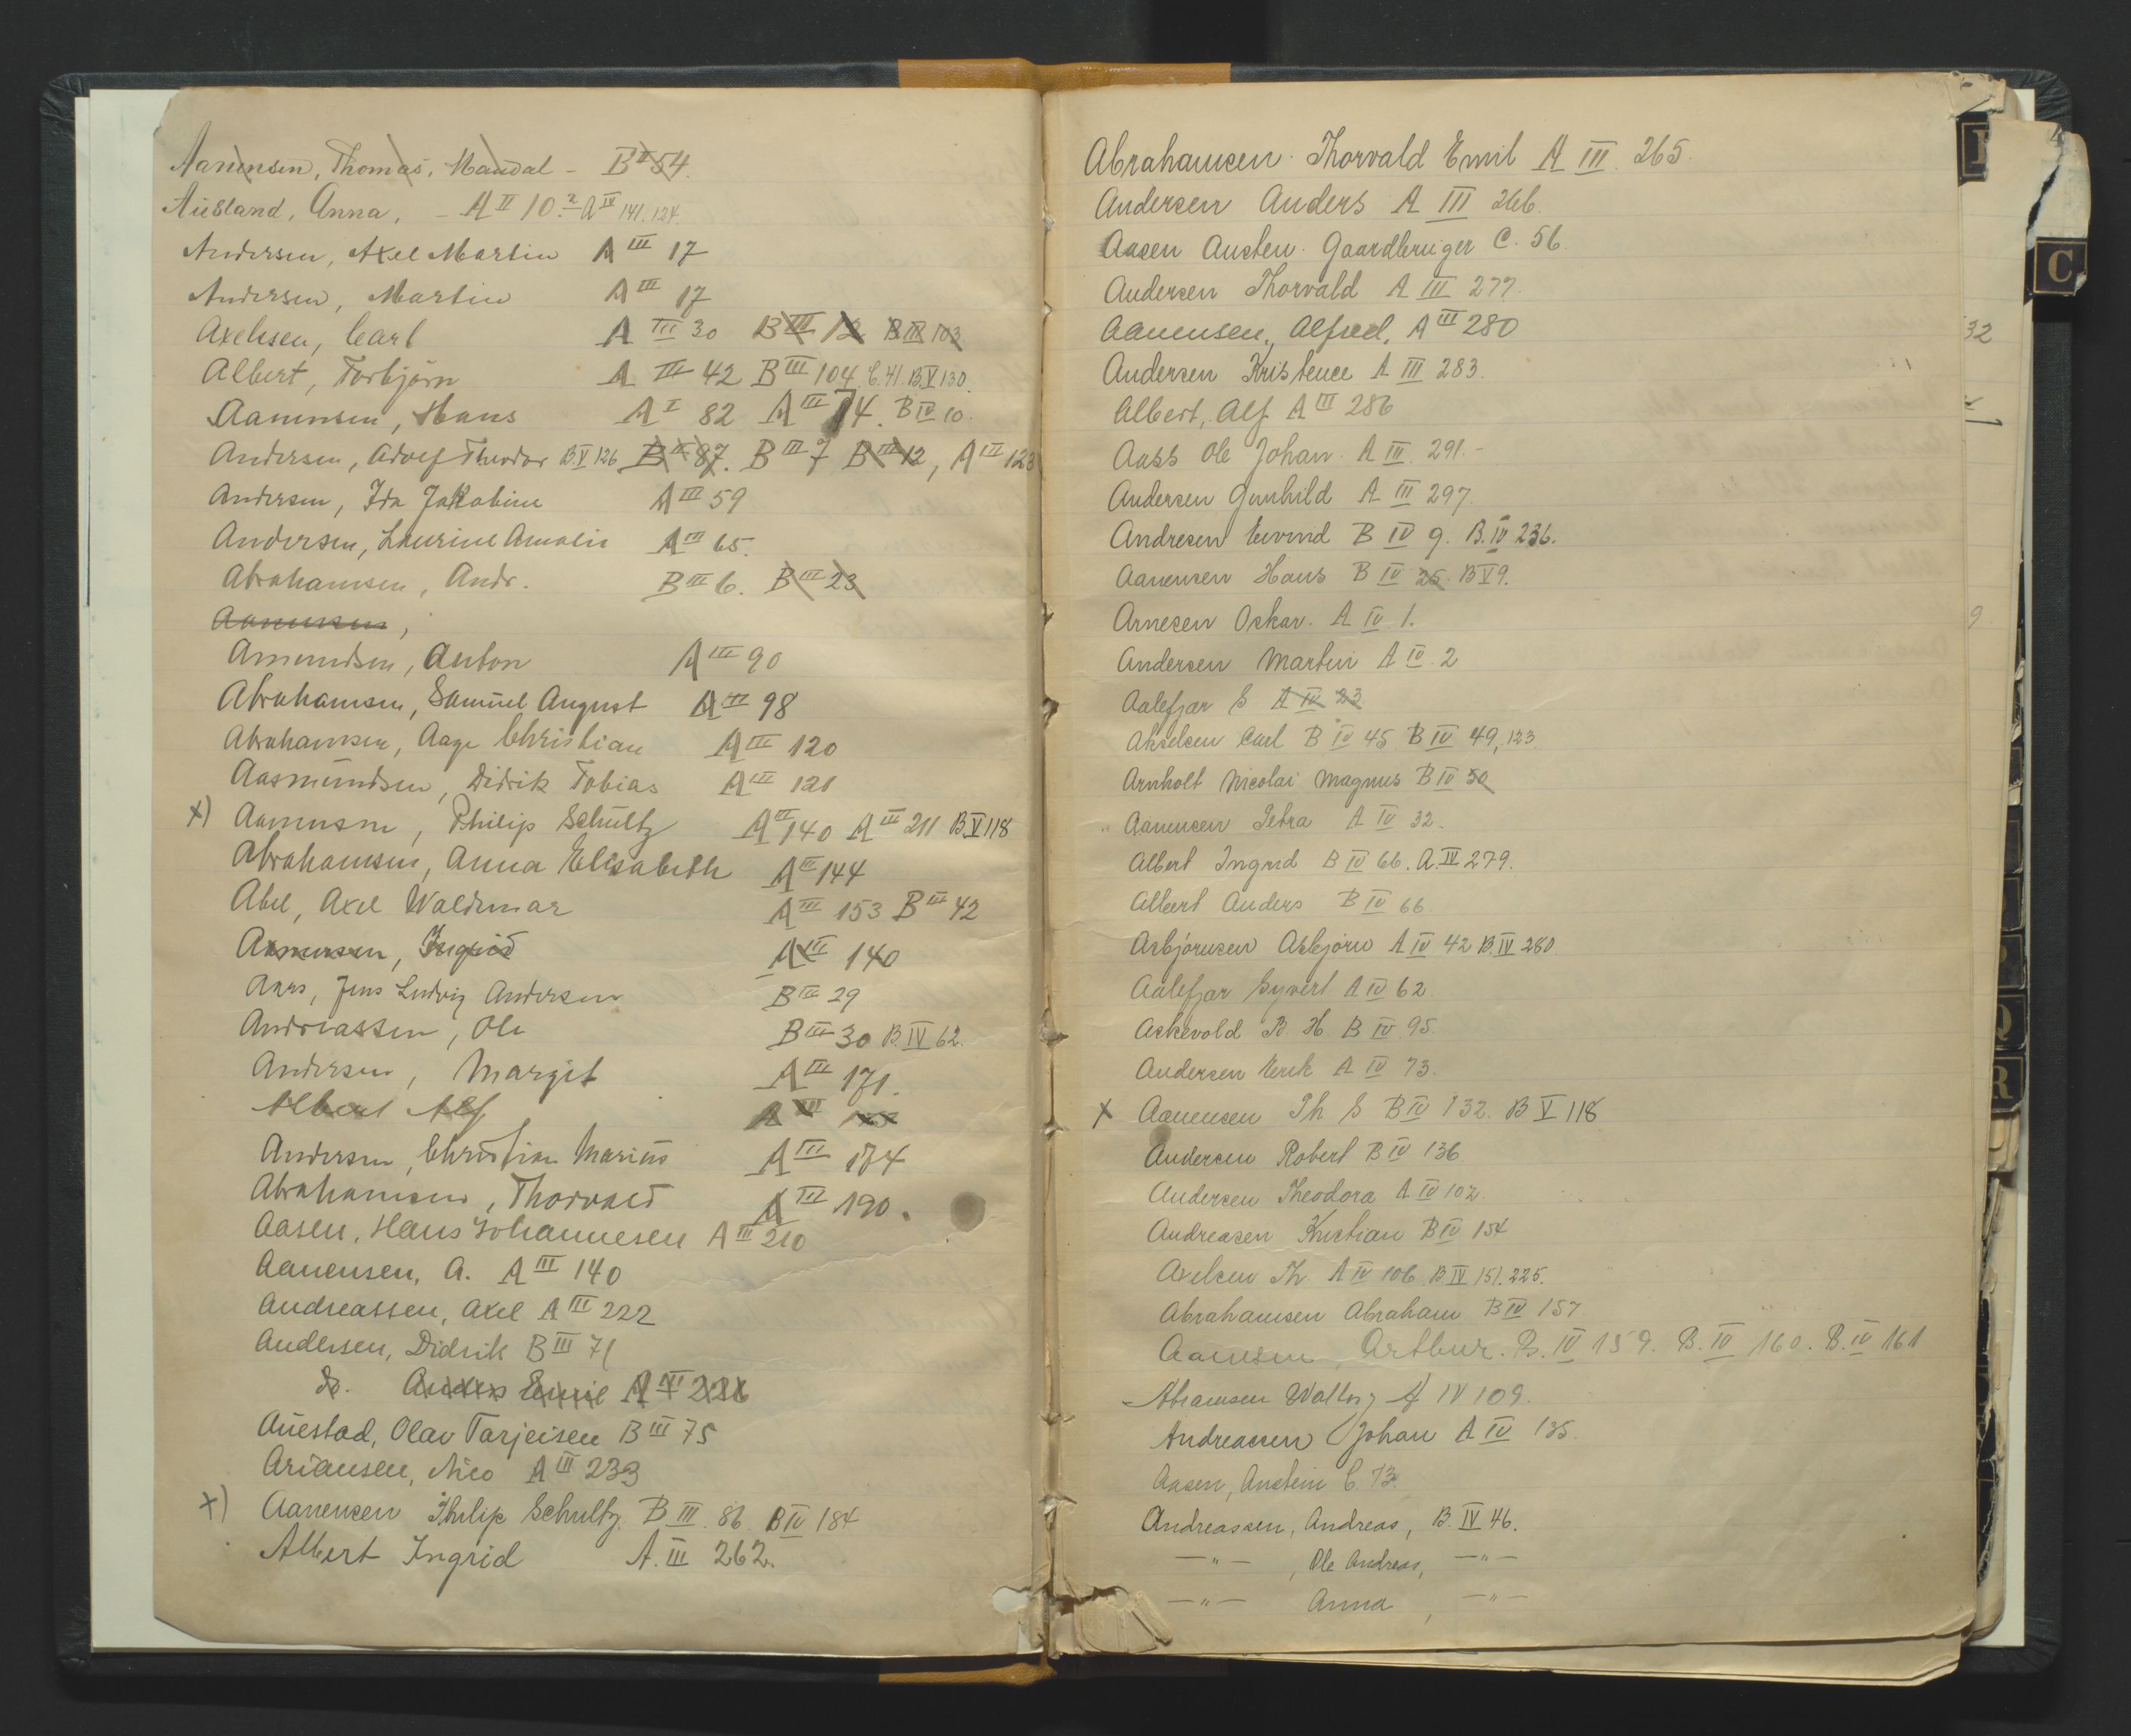 Aanensen, Thomas, Mandal - B II 54.
Aüsland, Anna, - A II 10.² A IV 141. 124.
Andersen, Axel Martin A III 17
Andersen, Martin A III 17
Axelsen, Carl A III 30 B III 12 B III 103
Albert, Torbjörn A III 42 B III 104. C. 41. B.V 130.
Aanensen, Hans A I 82 A III 74. B IV 10.
Andersen, Adolf Theodor B.V 126 B II 87. B III 7 B III 12, A III 128
Andersen, Ida Jakobine A III 59
Andersen, Laurine Amalie A III 65.
Abrahamsen, Andr. B III 6. B III 23
Aanensen,
Amundsen, Anton A III 90
Abrahamsen, Samüel August A III 98
Abrahamsen, Aage Christian A III 120
Aasmündsen, Didrik Tobias A III 121
x) Aanensen, Philip Schültz A III 140 A III 211 B.V 118
Abrahamsen, Anna Elisabeth A III 144
Abel, Axel Waldemar A III 153 B III 42
Aanensen, Ingrid A III 140
Aars, Jens Ludvig Andersen B III 29
Andreassen, Ole B III 30 B.IV 62.
Andersen, Margit A III 171.
Albert Alf A III
Andersen, Christian Marius A III 174
Abrahamsen, Thorvald A III 190.
Aasen, Hans Johannesen A III 210
Aanensen, A. A III 140
Andreassen, Axel A III 222
Andersen, Didrik B III 71
do. Anders Emil A III 226
Aüestad, Olav Tarjeisen B III 75
Ariansen, Nico A III 233
x) Aanensen Philip Schultz. B III. 86 B IV 184
Albert Ingrid A. III 262.
Abrahamsen. Thorvald Emil A III. 265.
Andersen Anders A III 266.
Aasen Austen. Gaardbruger C. 56.
Andersen Thorvald A III 277.
Aanensen, Alfred, A III 280
Andersen Kristence A III 283.
Albert, Alf A III 286
Aass Ole Johan. A III. 291.-
Andersen Gunhild A III 297.
Andresen Eivind B IV 9. B.IV 236.
Aanensen Hans B IV 25. B V 9.
Arnesen Oskar. A IV 1.
Andersen Martin A IV. 2
Aalefjær S A IV 23
Akselsen Carl B IV 45 B IV 49, 123
Arnholt Nicolai Magnus B IV 50
Aanensen Petra A IV 32.
Albert Ingrid B IV 66. A.IV 279.
Albert Anders B IV 66.
Asbjörnsen Asbjörn A IV 42 B.IV 280.
Aalefjær Syvert A IV 62.
Askevold B H B IV 95.
Andersen Henk A IV 73.
x Aanensen Ph S B IV 132. B V 118
Andersen Robert B IV 136
Andersen Theodora A IV 102.
Andreasen Kristian B IV 154
Axelsen Th A IV 106. B IV 151. 225.
Abrahamsen Abraham B IV 157.
Aanesen, Arthur. B. IV 159. B. IV 160. B. IV 161
Abramsen Walborg A IV 109.
Andreassen Johan A IV 135.
Aasen, Austein C. 73.
Andreassen, Andreas, B. IV 46.
—"— , Ole Andreas, —"—
—"— Anna , —"—
C
32
9
Q
R